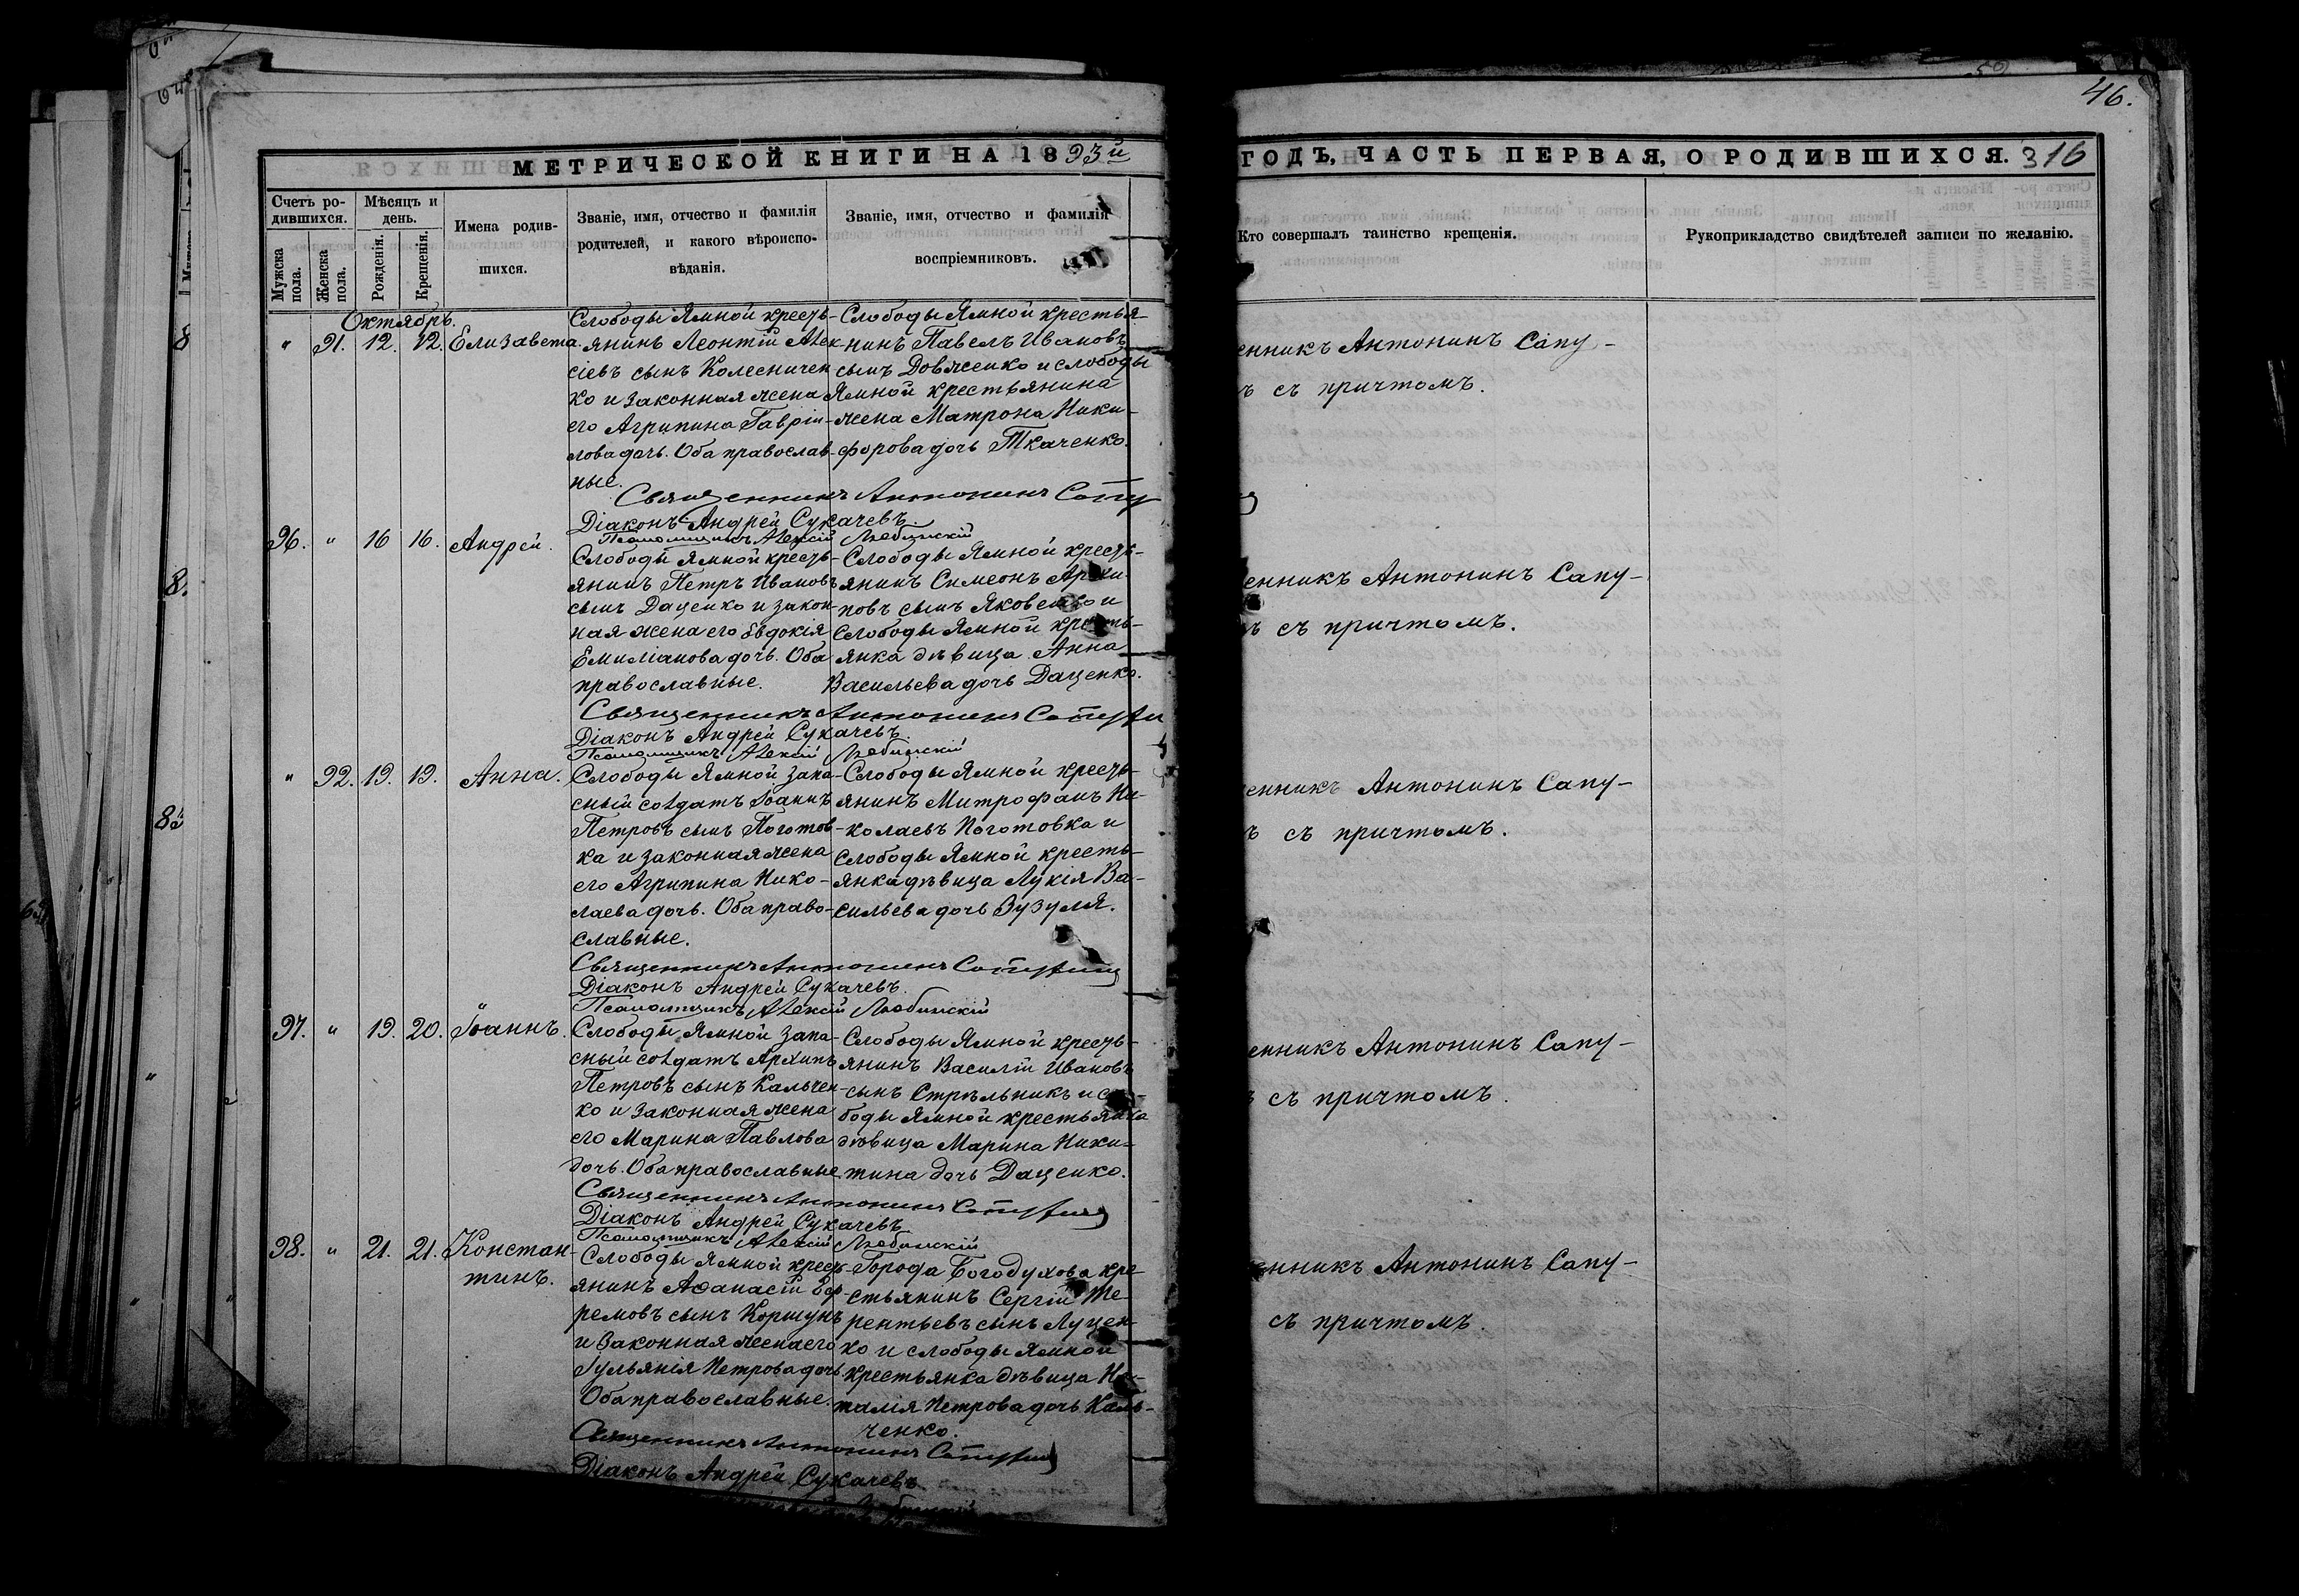 46.
МЕТРИЧЕСКОЙ КНИГИ НА 1893й
ГОДЪ, ЧАСТЬ ПЕРВАЯ, О РОДИВШИХСЯ. 316
Счетъ ро-
дившихся.
Мужска
пола.
Женска
пола.
Мѣсяцъ и
день.
Рожденія.
Крещенія.
Имена родив-
шихся.
Званіе, имя, отчество и фамилія
родителей, и какого вѣроиспо-
вѣданія.
Званіе, имя, отчество и фамилія
воспріемниковъ.
Кто совершалъ таинство крещенія.
Рукоприкладство свидѣтелей записи по желанію.
Октябрь.
" 91. 12. 12. Елизавета.
Слободы Ямной кресть-
янинъ Леонтій Алек-
сіевъ сынъ Колесничен
ко и законная жена
его Агрипина Гавріи-
лова дочь. Оба православ-
ные.
Слободы Ямной крестья-
нинъ Павелъ Ивановъ
сынъ Довженко и слободы
Ямной крестьянина
жена Матрона Ники-
форова дочь Ткаченко.
енникъ Антонинъ Сапу-
ъ съ причтомъ.
Священникъ Антонинъ Сапу
Діаконъ Андрей Сукачевъ.
Псаломщикъ Алексій Любинскій
96. " 16 16. Андрей.
Слободы Ямной кресть-
янинъ Петръ Ивановъ
сынъ Даценко и закон-
ная жена его Евдокія
Емиліанова дочь. Оба
православные.
Слободы Ямной кресть-
янинъ Симеонъ Архи-
повъ сынъ Яковенко и
слободы Ямной кресть-
янка дѣвица Анна
Васильева дочь Даценко.
енникъ Антонинъ Сапу-
ъ съ причтомъ.
Священникъ Антонинъ
Діаконъ Андрей Сукачевъ.
Псаломщикъ Алексій Любинскій
" 92. 19. 19. Анна.
Слободы Ямной запа-
сный солдатъ Іоаннъ
Петровъ сынъ Поготов-
ка и законная жена
его Агрипина Нико-
лаева дочь. Оба право-
славные.
Слободы Ямной кресть-
янинъ Митрофанъ Ни-
колаевъ Поготовка и
слободы Ямной кресть-
янка дѣвица Лукія Ва-
сильева дочь Зузуля.
енникъ Антонинъ Сапу-
ъ съ причтомъ.
Священникъ Антонинъ
Діаконъ Андрей Сукачевъ.
Псаломщикъ Алексій Любинскій
97. " 19. 20. Іоаннъ.
Слободы Ямной запа-
сный солдатъ Архипъ
Петровъ сынъ Кальчен-
ко и законная жена
его Марина Павлова
дочь. Оба православные.
Слободы Ямной кресть-
янинъ Василій Ивановъ
сынъ Стрѣльникъ и сло-
боды Ямной крестьянка
дѣвица Марина Ники-
тина дочь Даценко.
енникъ Антонинъ Сапу-
ъ съ причтомъ.
Священникъ Антонинъ
Діаконъ Андрей Сукачевъ
Псаломщикъ Алексій Любинскій
98. " 21. 21. Констан-
тинъ.
Слободы Ямной кресть-
янинъ Аѳанасій Еф-
ремовъ сынъ Коршунъ
и законная жена его
Іуліянія Петрова дочь.
Оба православные.
Города Богодухова кре-
стьянинъ Сергій Те-
рентьевъ сынъ Луцен-
ко и слободы Ямной
крестьянка дѣвица На-
талія Петрова дочь Каль-
ченко.
енникъ Антонинъ Сапу-
съ причтомъ.
Священникъ Антонинъ
Діаконъ Андрей Сукачевъ